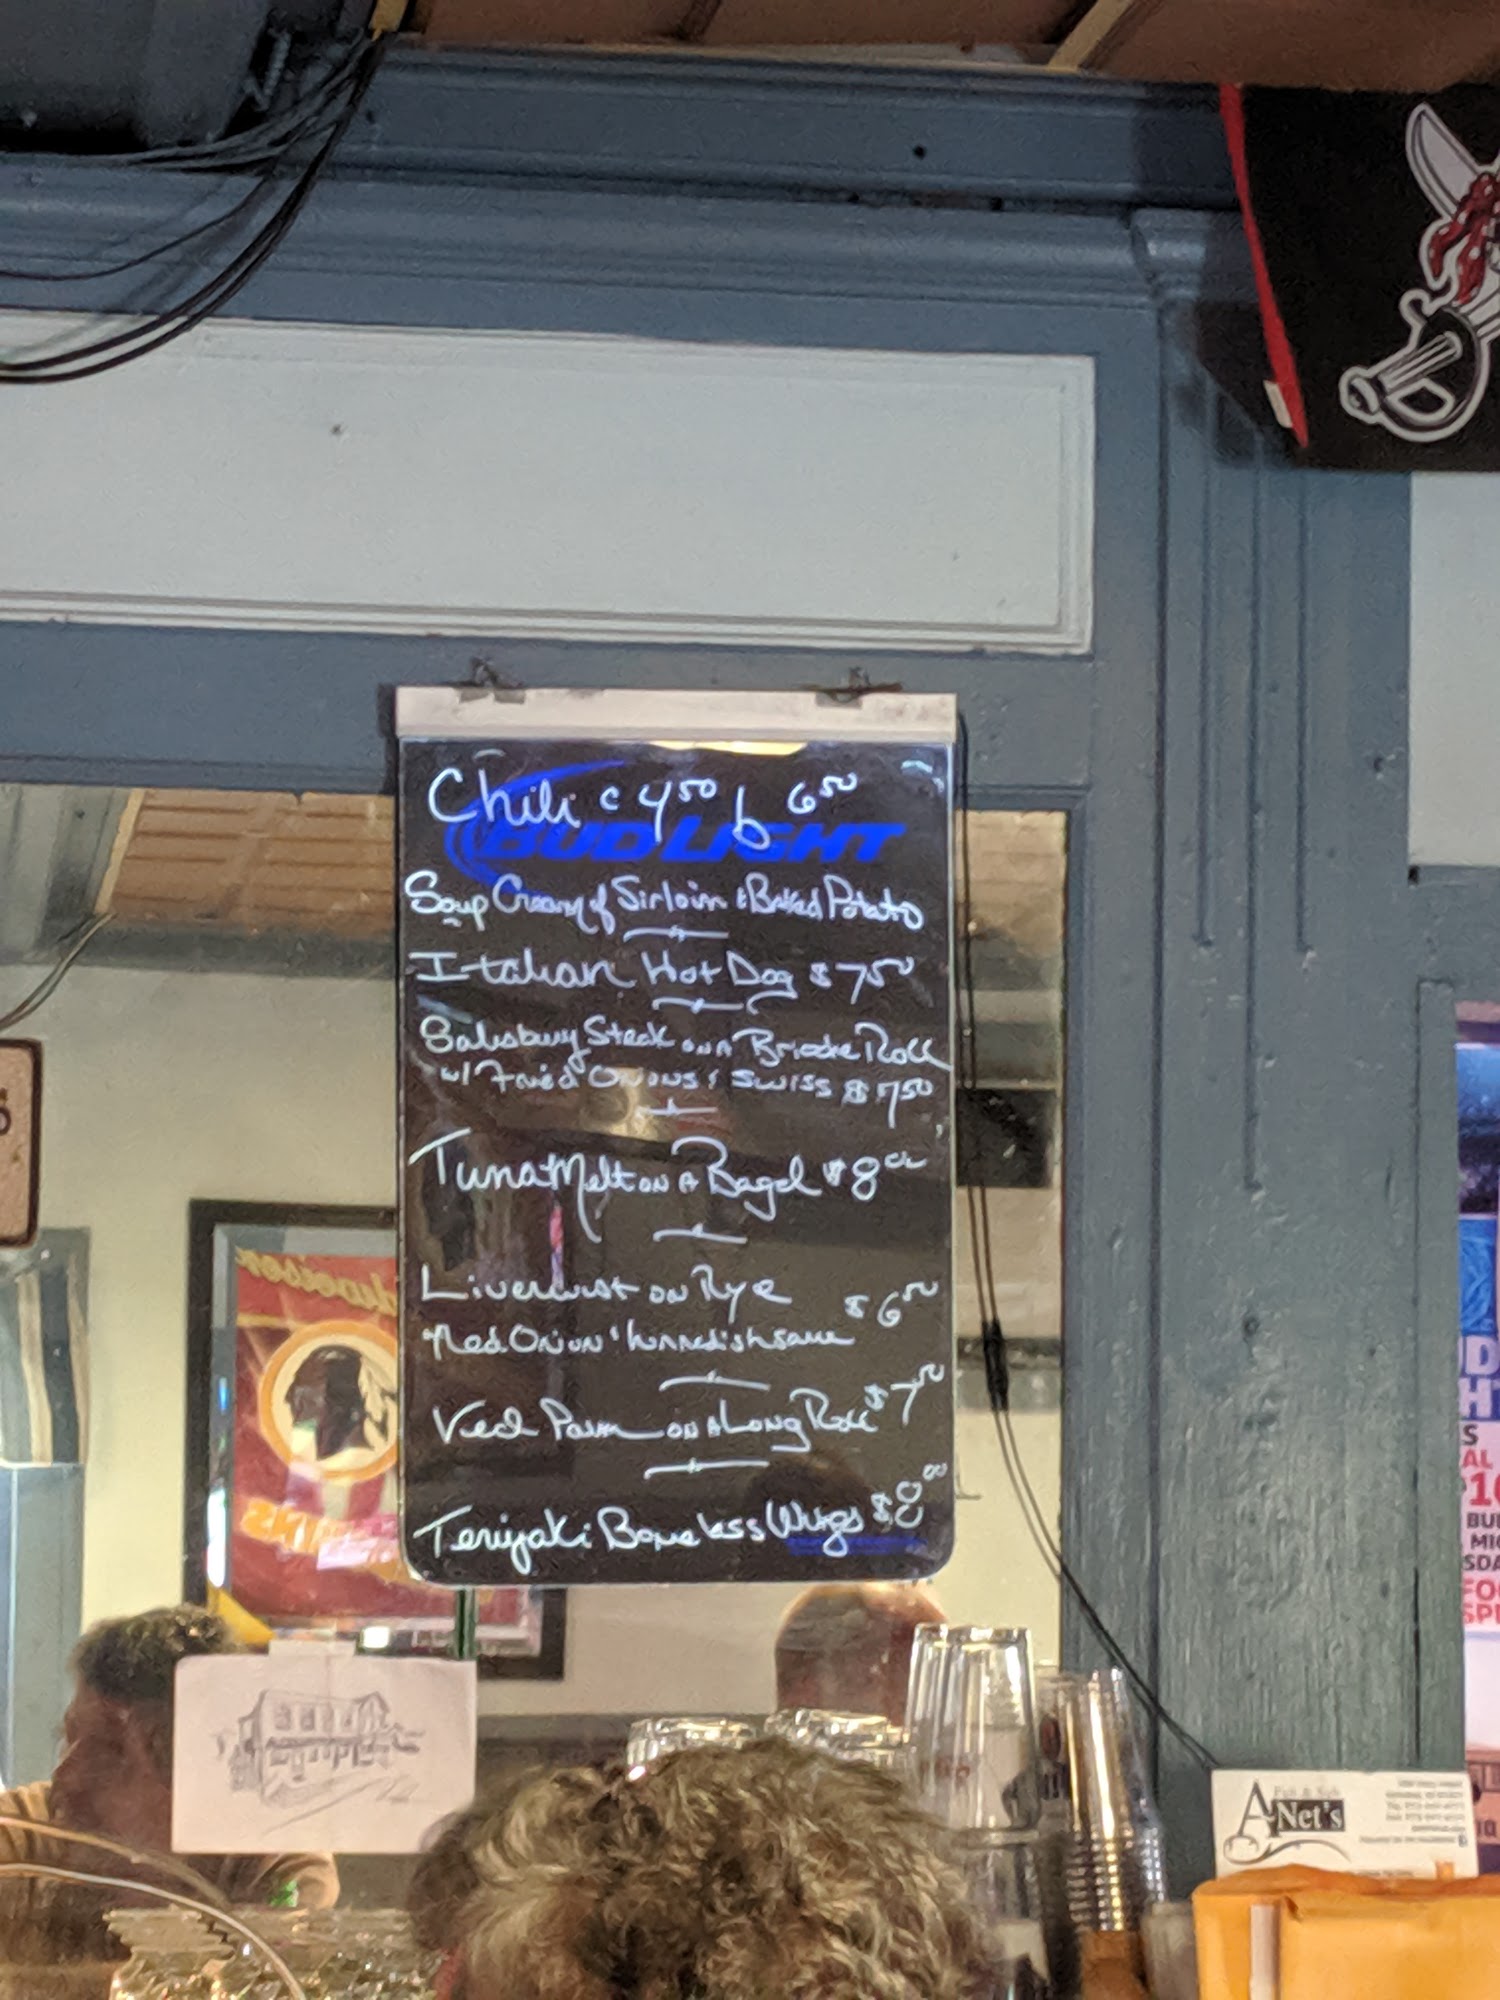 Chili c 4.50 b 6.50
BUD LIGHT
Soup Cream of Sirloin & Baked Potato
Italian Hot Dog $7.50
Salisbury Steak on a Brioche Roll
w/ Fried Onions & Swiss $7.50
Tuna Melt on a Bagel $8.00
Liverwurst on Rye
$6.50
Red Onion & horseradish sauce
Veal Parm on a Long Roll $7.50
Teriyaki Boneless Wings $8.00
A-Net's